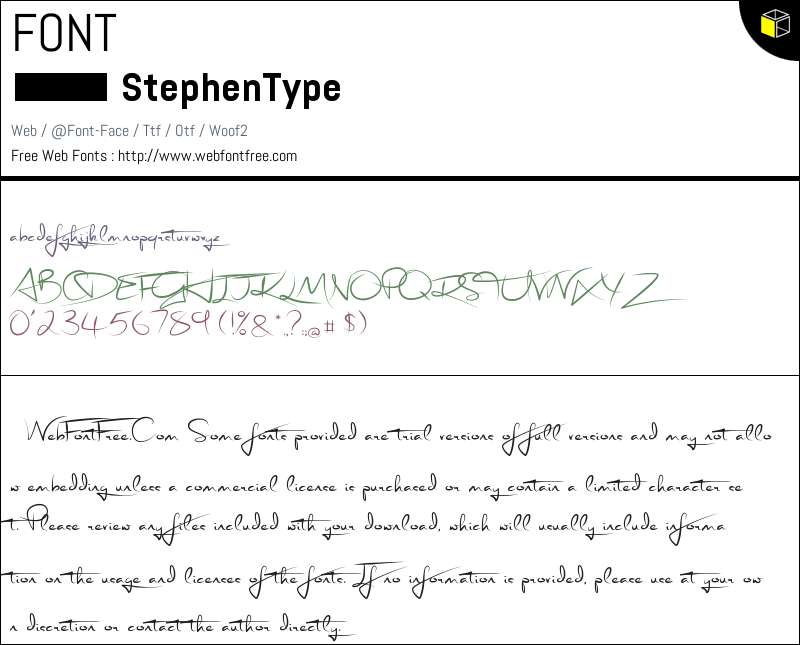 FONT
StephenType
Web / @Font-Face / Ttf / Otf / Woof2
Free Web Fonts : http://www.webfontfree.com
abcdefghijklmnopqrstuvwxyz
ABCDEFGHIJKLMNOPQRSTUVWXYZ
0'23456789(!%&*.,?:;@#$)
WebFontFree.Com Some fonts provided are trial versions of full versions and may not allo
w embedding unless a commercial license is purchased or may contain a limited character se
t. Please review any files included with your download, which will usually include informa
tion on the usage and licenses of the fonts. If no information is provided, please use at your ow
n discretion or contact the author directly.